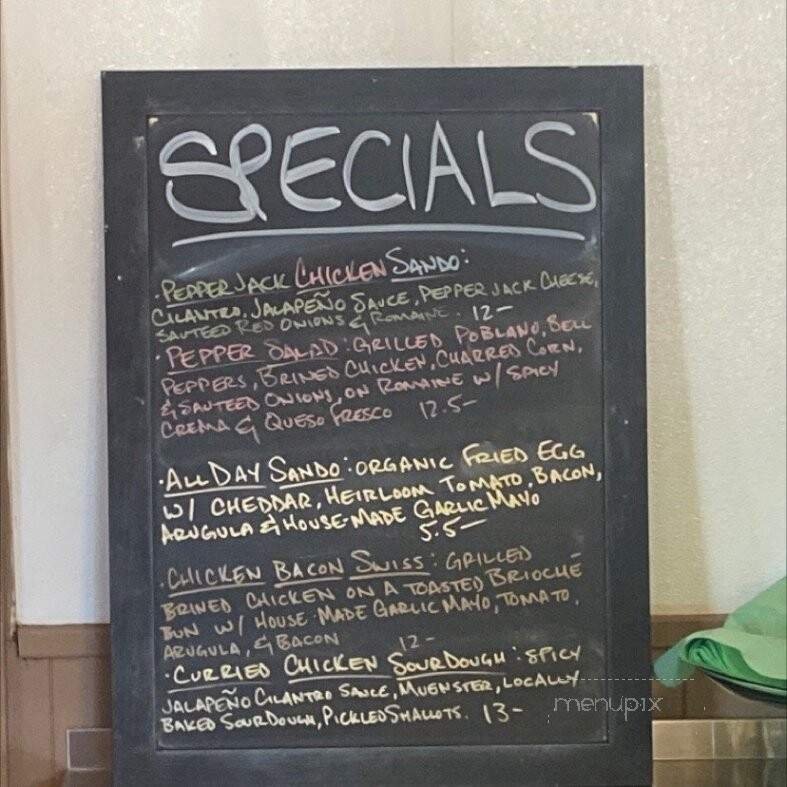 SPECIALS
· PEPPER JACK CHICKEN SANDO:
CILANTRO, JALAPEÑO SAUCE, PEPPER JACK CHEESE,
SAUTEED RED ONIONS & ROMAINE. 12-
· PEPPER SALAD: GRILLED POBLANO, BELL
PEPPERS, BRINED CHICKEN, CHARRED CORN,
& SAUTEED ONIONS, ON ROMAINE W/ SPICY
CREMA & QUESO FRESCO 12.5-
· ALL DAY SANDO: ORGANIC FRIED EGG
W/ CHEDDAR, HEIRLOOM TOMATO, BACON,
ARUGULA & HOUSE-MADE GARLIC MAYO
5.5-
· CHICKEN BACON SWISS: GRILLED
BRINED CHICKEN ON A TOASTED BRIOCHE
BUN W/ HOUSE-MADE GARLIC MAYO, TOMATO,
ARUGULA, & BACON 12-
· CURRIED CHICKEN SOURDOUGH: SPICY
JALAPEÑO CILANTRO SAUCE, MUENSTER, LOCALLY
BAKED SOURDOUGH, PICKLED SHALLOTS. 13-
menupix